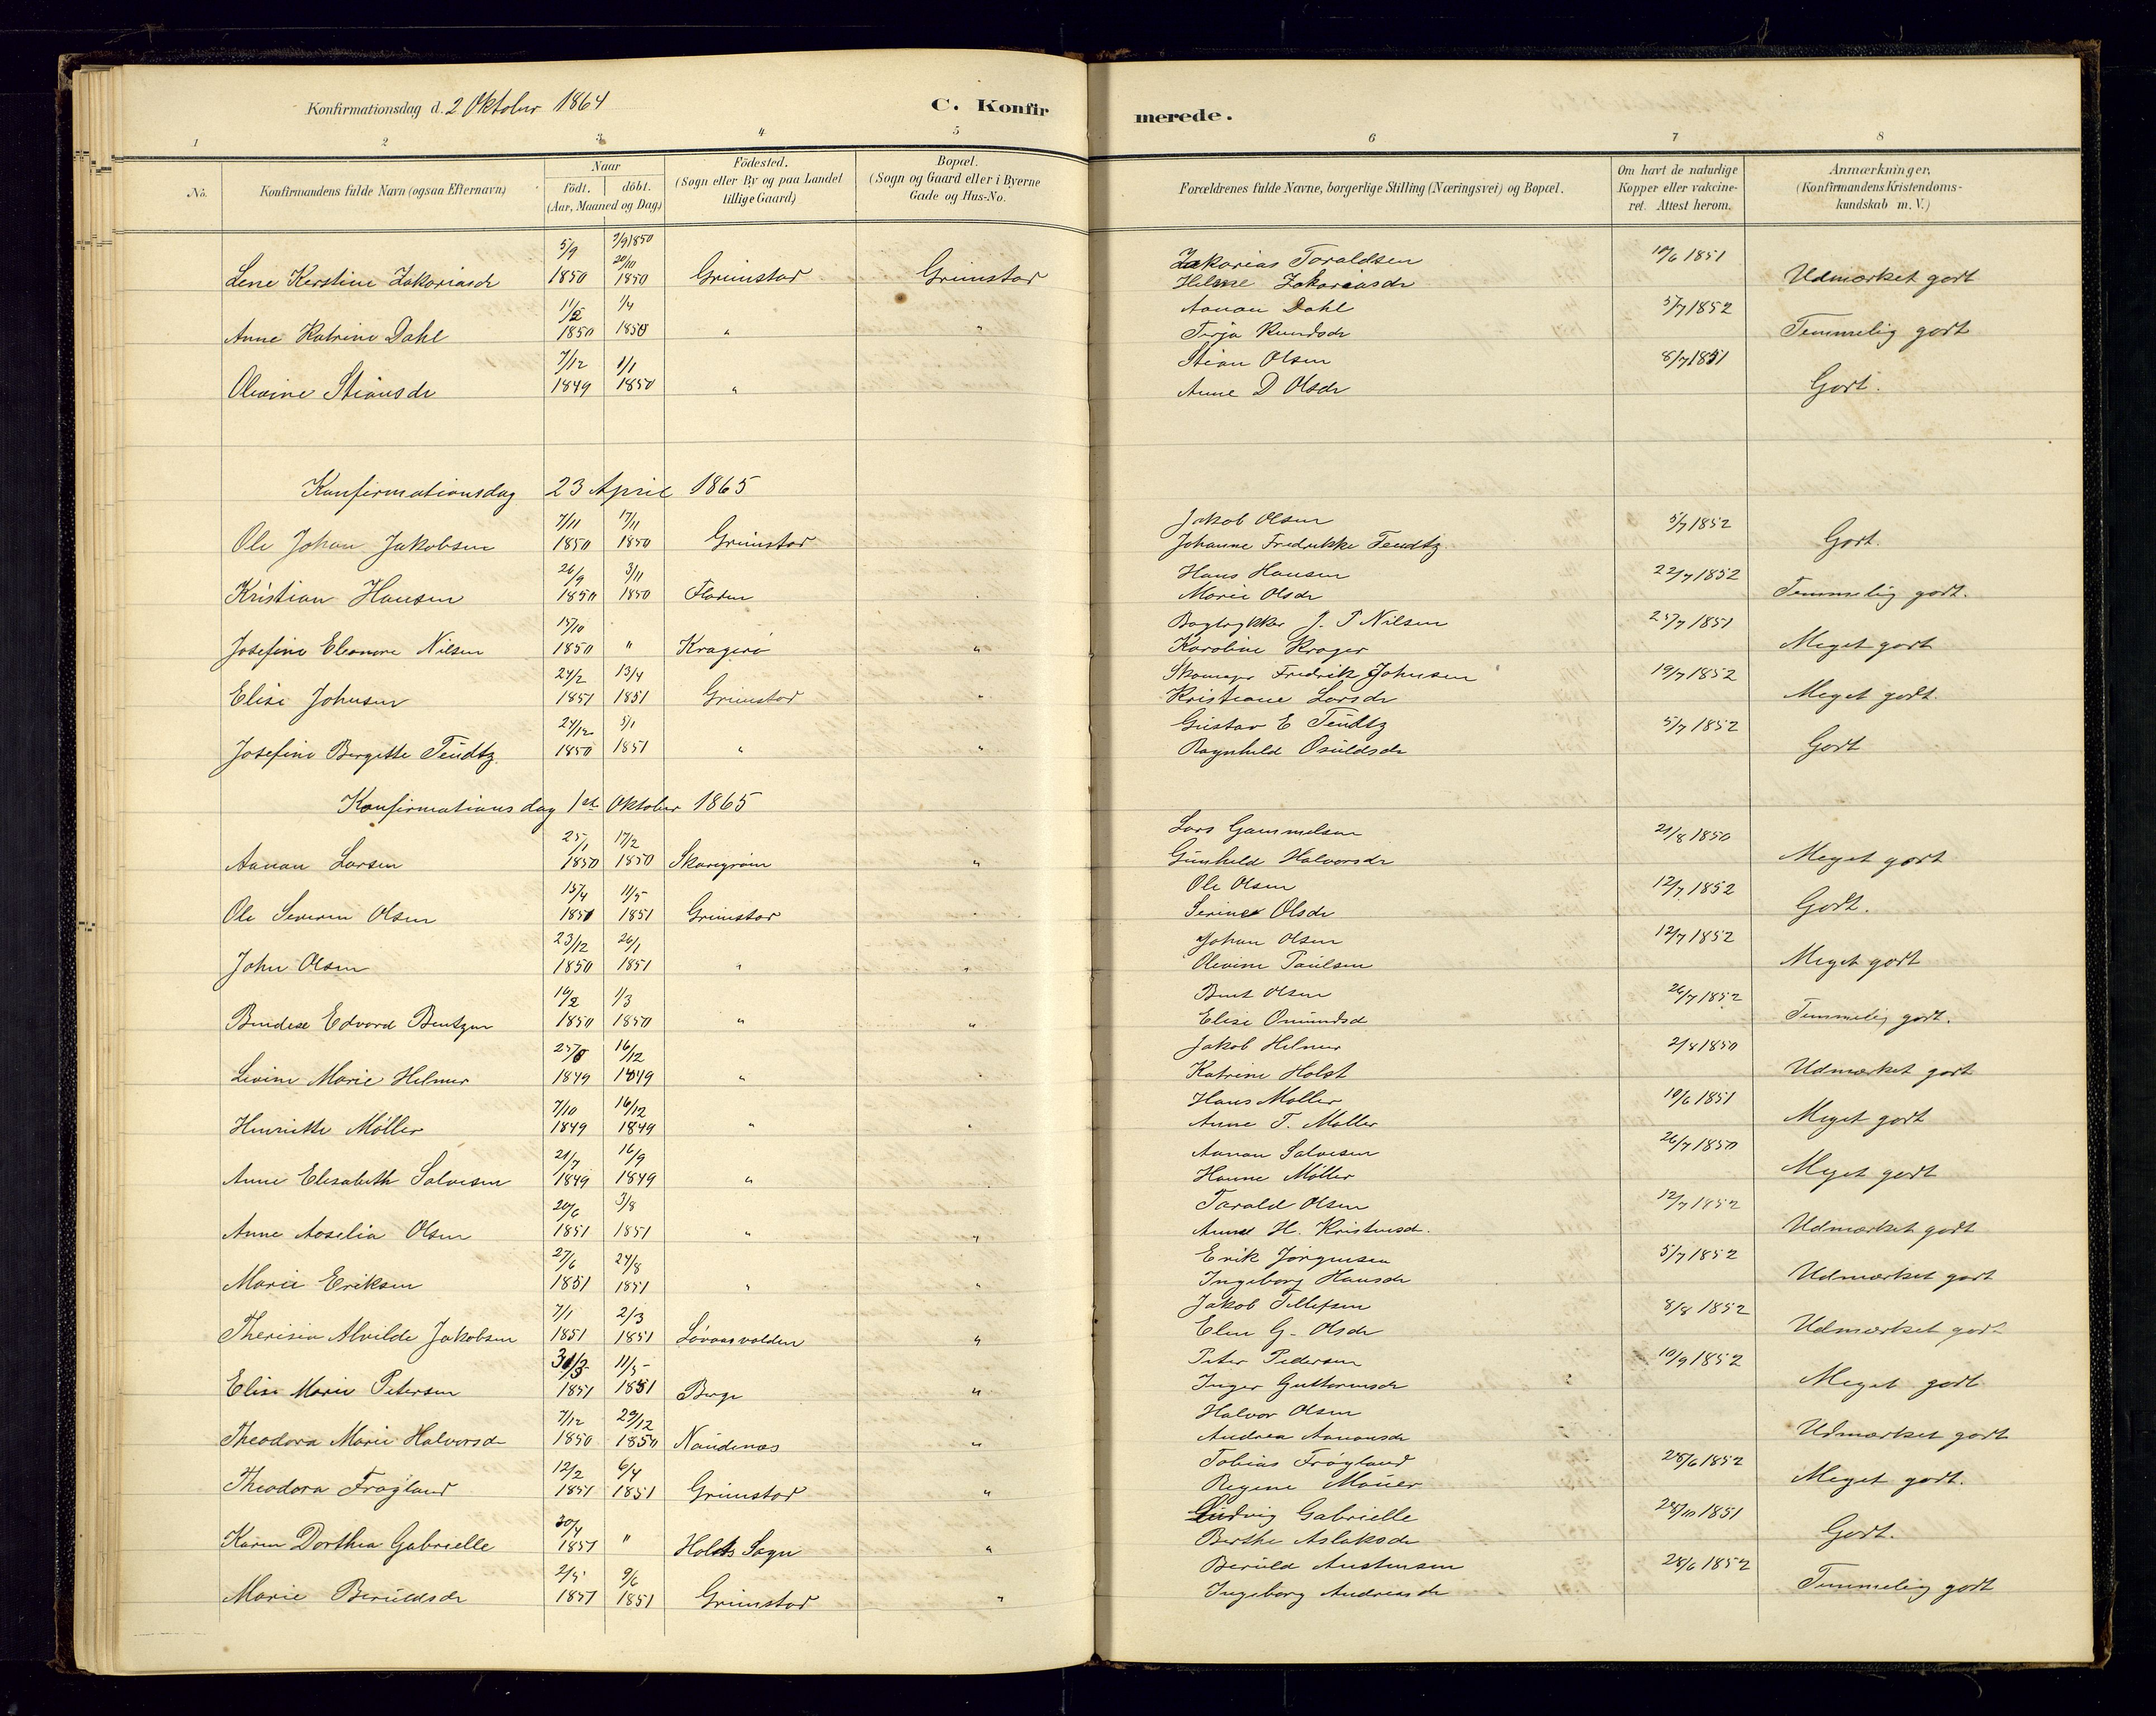 Konfirmationsdag d. 2 Oktober 1864 C. Konfirmerede.
1 2 3 4 5 6 7 8
No. Konfirmandens fulde Navn (ogsaa Efternavn) Naar födt. döbt. (Aar, Maaned og Dag) Födested. (Sogn eller By og paa Landet tillige Gaard) Bopæl. (Sogn og Gaard eller i Byerne Gade og Hus-No. Forældrenes fulde Navne, borgerlige Stilling (Næringsvei) og Bopæl. Om havt de naturlige Kopper eller vakcineret. Attest herom. Anmærkninger, (Konfirmandens Kristendomskundskab m. V.)
5/9 7/9 1850 20/10 Zakarias Taraldsen 10/6 1851
Lene Kerstine Zakariasdr 1850 1850 Grimstad Grimstad Helene Zakariasdr Udmærket godt
11/2 1/4 Aanon Dahl 5/7 1852
Anne Katrine Dahl 1850 1850 " " Terja Knudsdr Temmelig godt
7/12 1/1 Stian Olsen 8/7 1851
Olevine Stiansdr 1849 1850 " Anne D Olsdr Godt.
Konfirmationsdag 23 April 1865
7/11 17/11 Jakob Olsen 5/7 1852
Ole Johan Jakobsen 1850 1850 Grimstad Johanne Fredrikke Teudtz Godt.
26/9 3/11 Hans Hansen 22/7 1852
Kristian Hansen 1850 1850 Fladen Marie Olsdr Temmelig godt.
15/10 Bogtrykker J. P Nilsen 25/7 1851
Josefine Eleonore Nilsen 1850 " Kragerö " Karoline Krager Meget godt
24/2 13/4 Skomager Fredrik Johnsen 19/7 1852
Elise Johnsen 1851 1851 Grimstad " Kristiane Larsdr Meget godt.
27/12 5/1 Gustav E Teudtz 5/7 1852
Josefine Bergitte Teudtz. 1850 1851 " " Ragnhild Osuldsdr Godt
Konfirmationsdag 1ste Oktober 1865
25/1 17/2 Lars Gammelsen 21/8 1850
Aanon Larsen 1850 1850 Skaregröm " Gunhild Halvorsdr Meget godt
15/4 11/5 Ole Olsen 12/7 1852
Ole Severin Olsen 1851 1851 Grimstad " Serine Olsdr Godt.
23/12 26/1 Johan Olsen 12/7 1852
John Olsen 1850 1851 " " Olevine Paulsen Meget godt
16/2 1/3 Bent Olsen 26/7 1852
Bendix Edvard Bentzen 1850 1850 " " Elise Omundsd Temmelig godt.
25/8 16/12 Jakob Helmer 2/8 1850
Levine Marie Helmer 1849 1849 " " Katrine Holst Udmærket godt
7/10 16/12 Hans Møller 10/6 1851
Henriette Möller 1849 1849 " " Anne T. Møller Meget godt
21/7 16/9 Aanon Salvesen 26/7 1850
Anne Elisabeth Salvesen 1849 1849 " Hanne Möller Meget godt
20/6 3/8 Tarald Olsen 12/7 1852
Anne Aoselia Olsen 1851 1851 " " Anne H. Kristensd. Udmærket godt
27/6 24/8 Erik Jörgensen 5/7 1852
Marie Eriksen 1851 1851 " " Ingeborg Hansdr Udmærket godt
7/1 2/3 Jakob Tellefsen 8/8 1852
Theresia Alvilde Jakobsen 1851 1851 Lövaasvolden " Elen G. Olsdr Udmærket godt
31/3 11/5 Peter Pedersen 10/9 1852
Elise Marie Petersen 1851 1851 Berge " Inger Guttormsdr Meget godt
7/12 29/12 Halvor Olsen
Theodora Marie Halvorsdr 1850 1850 Naudenæs " Andrea Aanonsdr Udmærket godt
12/2 6/4 Tobias Frögland 28/6 1852
Theodora Frögland 1851 1851 Grimstad " Regine Mauer Meget godt.
30/4 Ludvig Gabrielle 28/10 1851
Karen Dorthea Gabrielle 1851 " Holts Sogn " Berthe Aslaksdr Godt.
2/5 9/6 Beruld Austensen 28/6 1852
Marie Beruldsdr 1851 1851 Grimstad " Ingeborg Andreasdr Temmelig godt